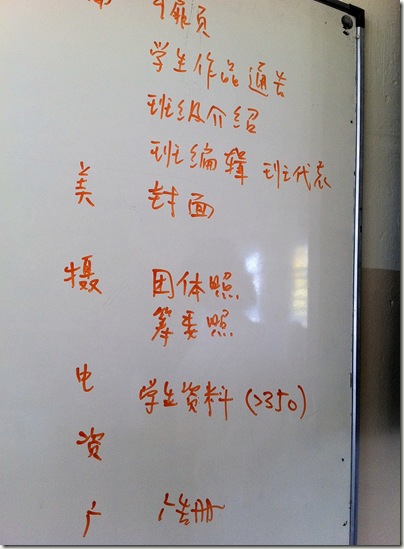 扉页
学生作品通告
班级介绍
班编辑 班代表
美 封面
摄 团体照
筹委照
电 学生资料 (>350)
资
广 广告册